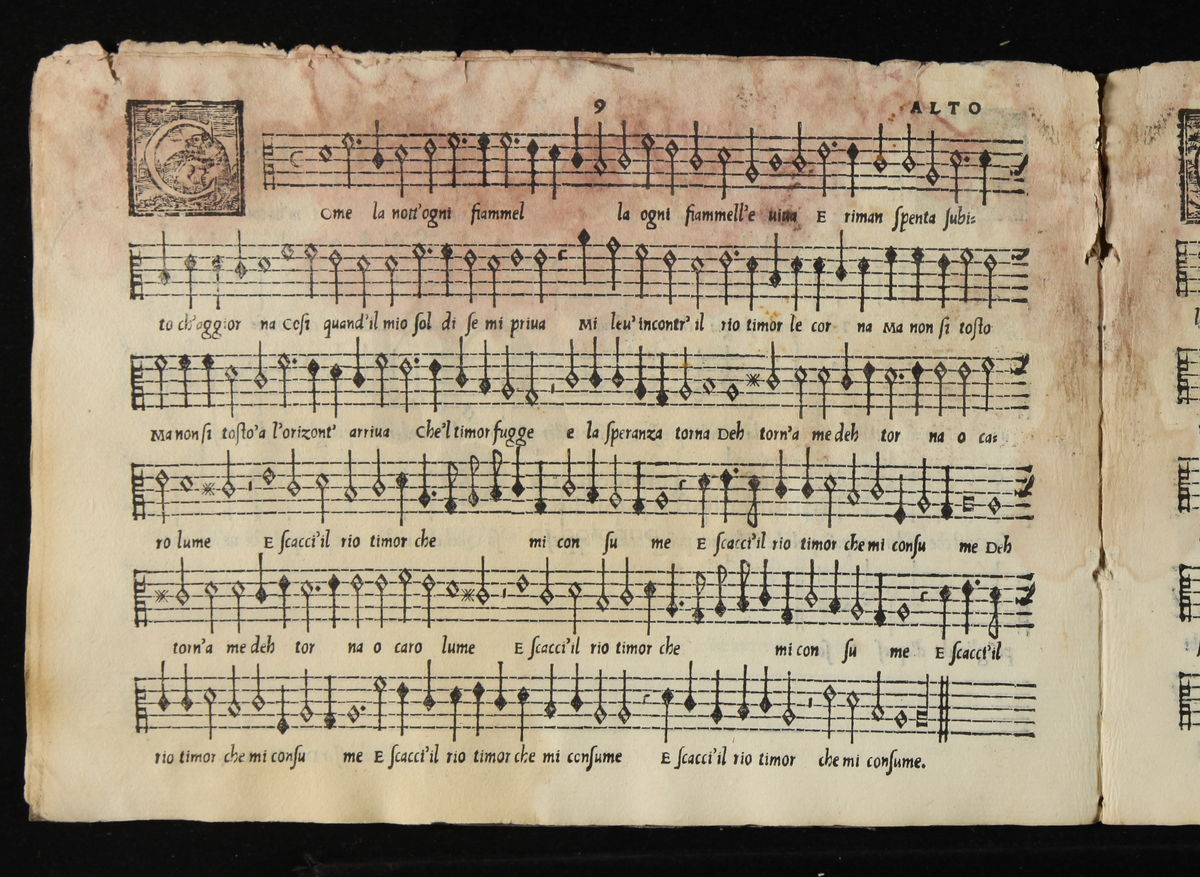 9
ALTO
COme la nott'ogni fiammel la ogni fiammell'e uiua E riman spenta subi=
to ch'aggior na Cosi quand'il mio sol di se mi priua Mi leu'incontr'il rio timor le cor na Ma non si tosto
Ma non si tosto'a l'orizont' arriua Che'l timor fugge e la speranza torna Deh torn'a me deh tor na o ca=
ro lume E scacci'il rio timor che mi con su me E scacci'il rio timor che mi consu me Deh
torn'a me deh tor na o caro lume E scacci'il rio timor che mi con su me E scacci'il
rio timor che mi consu me E scacci'il rio timor che mi consume E scacci'il rio timor che mi consume.